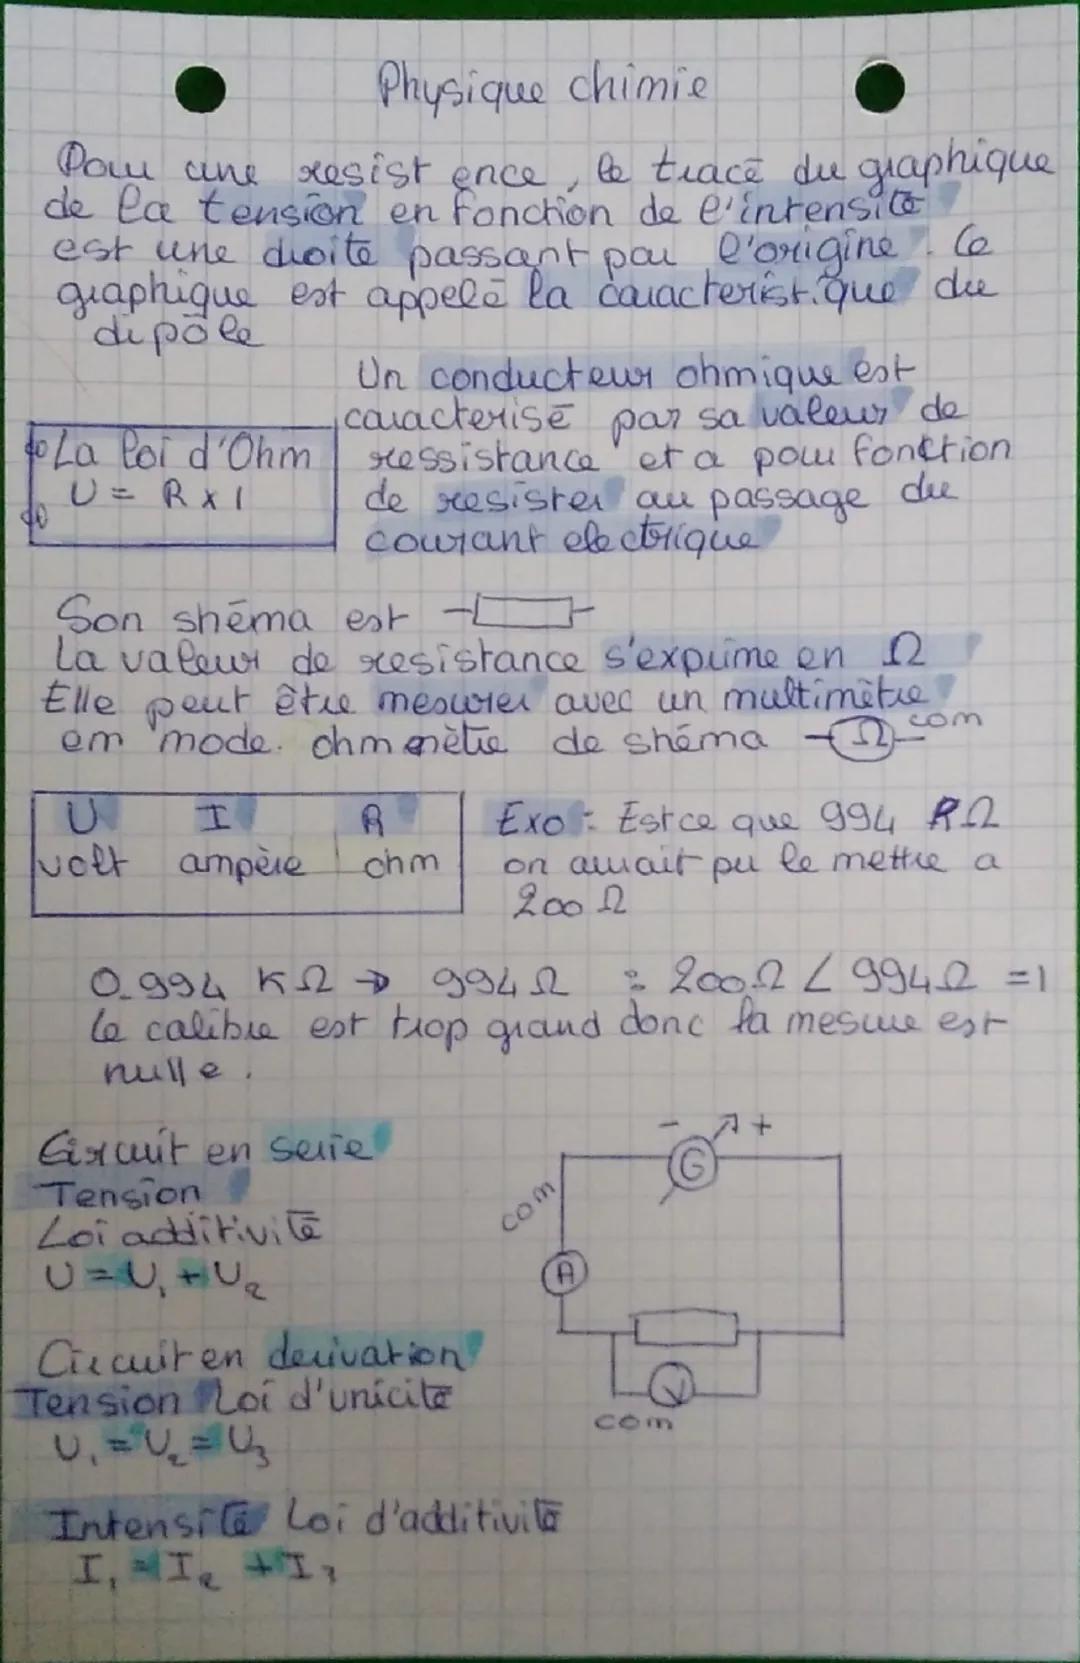 Physique chimie
Pour une resist ence, le tracé du graphique
de la tension en fonction de l'intensité
est une droite passant par l'origine. Ce
graphique est appelé la caracterist.que du
dipôle
Un conducteur ohmique est
caracterisé par sa valeur de
ressistance et a pour fonction
de resister au passage du
courant electrique
La loi d'Ohm
U = R x I
Son shéma est
La valeur de resistance s'exprime en Ω
Elle peut être mesurer avec un multimètre
em mode. ohmmètre de shéma Ω com
U I R
volt ampère ohm
Exo : Est ce que 994 RΩ
on aurait pu le mettre a
200 Ω
0.994 KΩ → 994 Ω : 200 Ω < 994 Ω = 1
Le calibre est trop grand donc la mesure est
nulle.
Circuit en serie
Tension
Loi additivité
U = U1 + U2
- G +
com
A
V
com
Circuit en derivation
Tension Loi d'unicité
U1 = U2 = U3
Intensité Loi d'additivité
I1 = I2 + I3